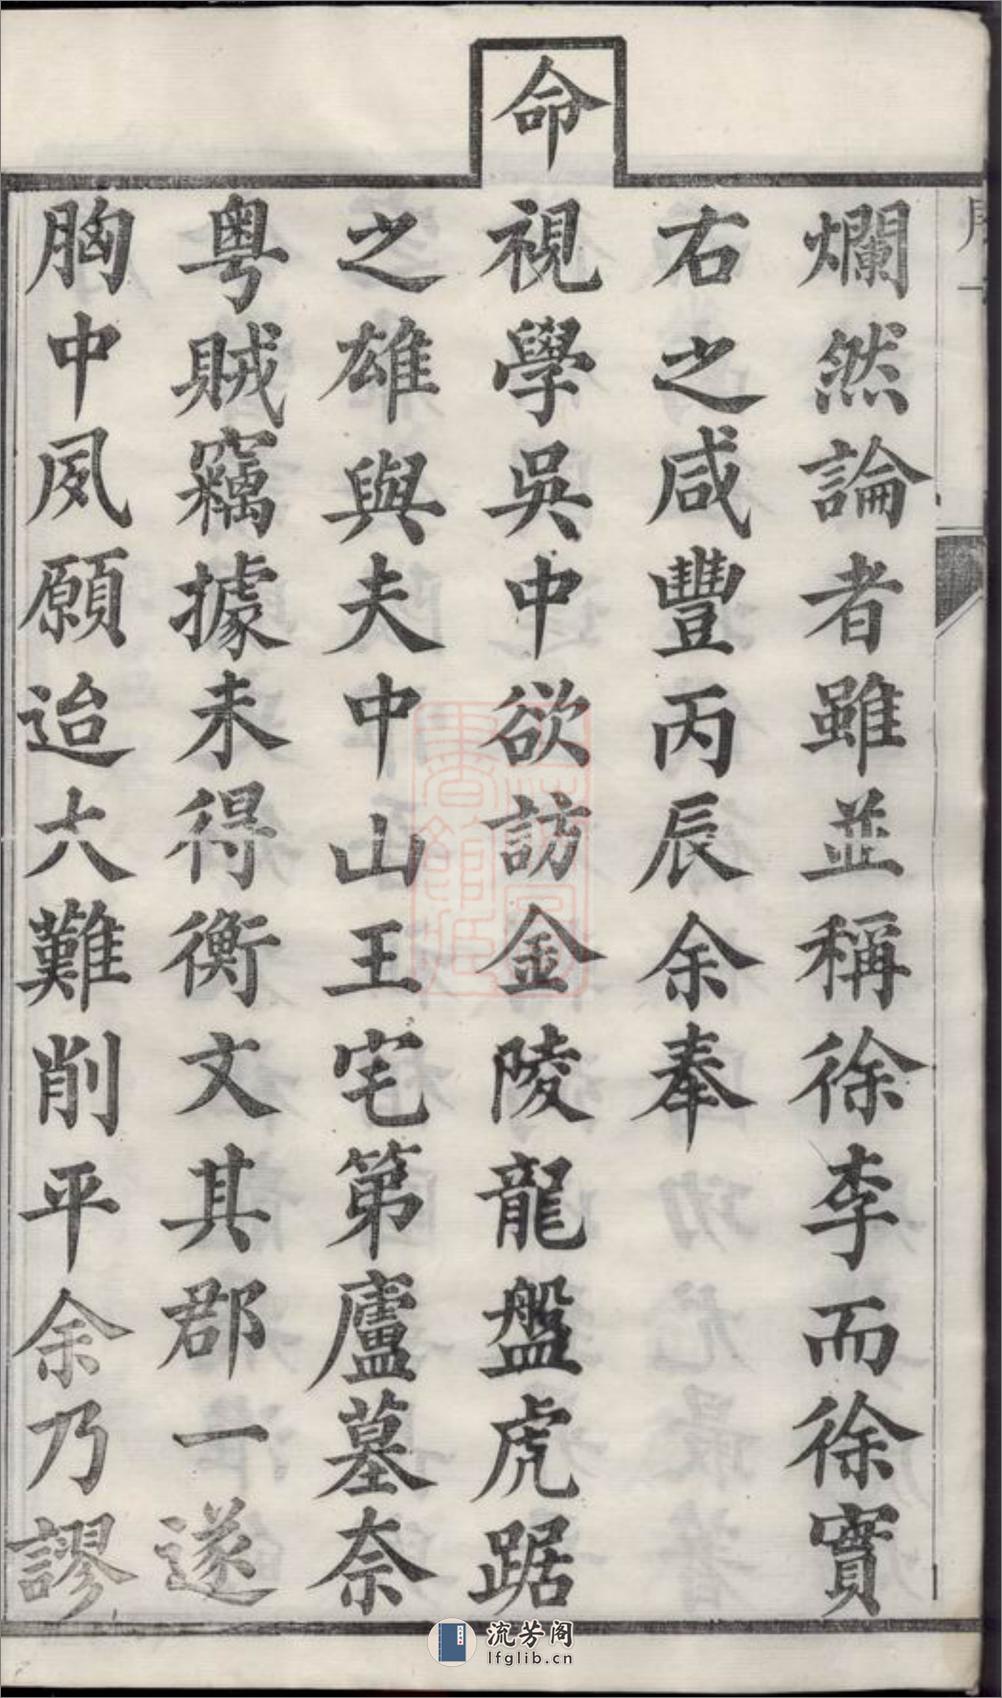 爛然論者雖並稱徐李而徐實
右之咸豐丙辰余奉
命
視學吳中欲訪金陵龍盤虎踞
之雄與夫中山王宅第廬墓奈
粤賊竊據未得衡文其郡一遂
胸中夙願迨大難削平余乃謬
流芳阁
lfglib.cn